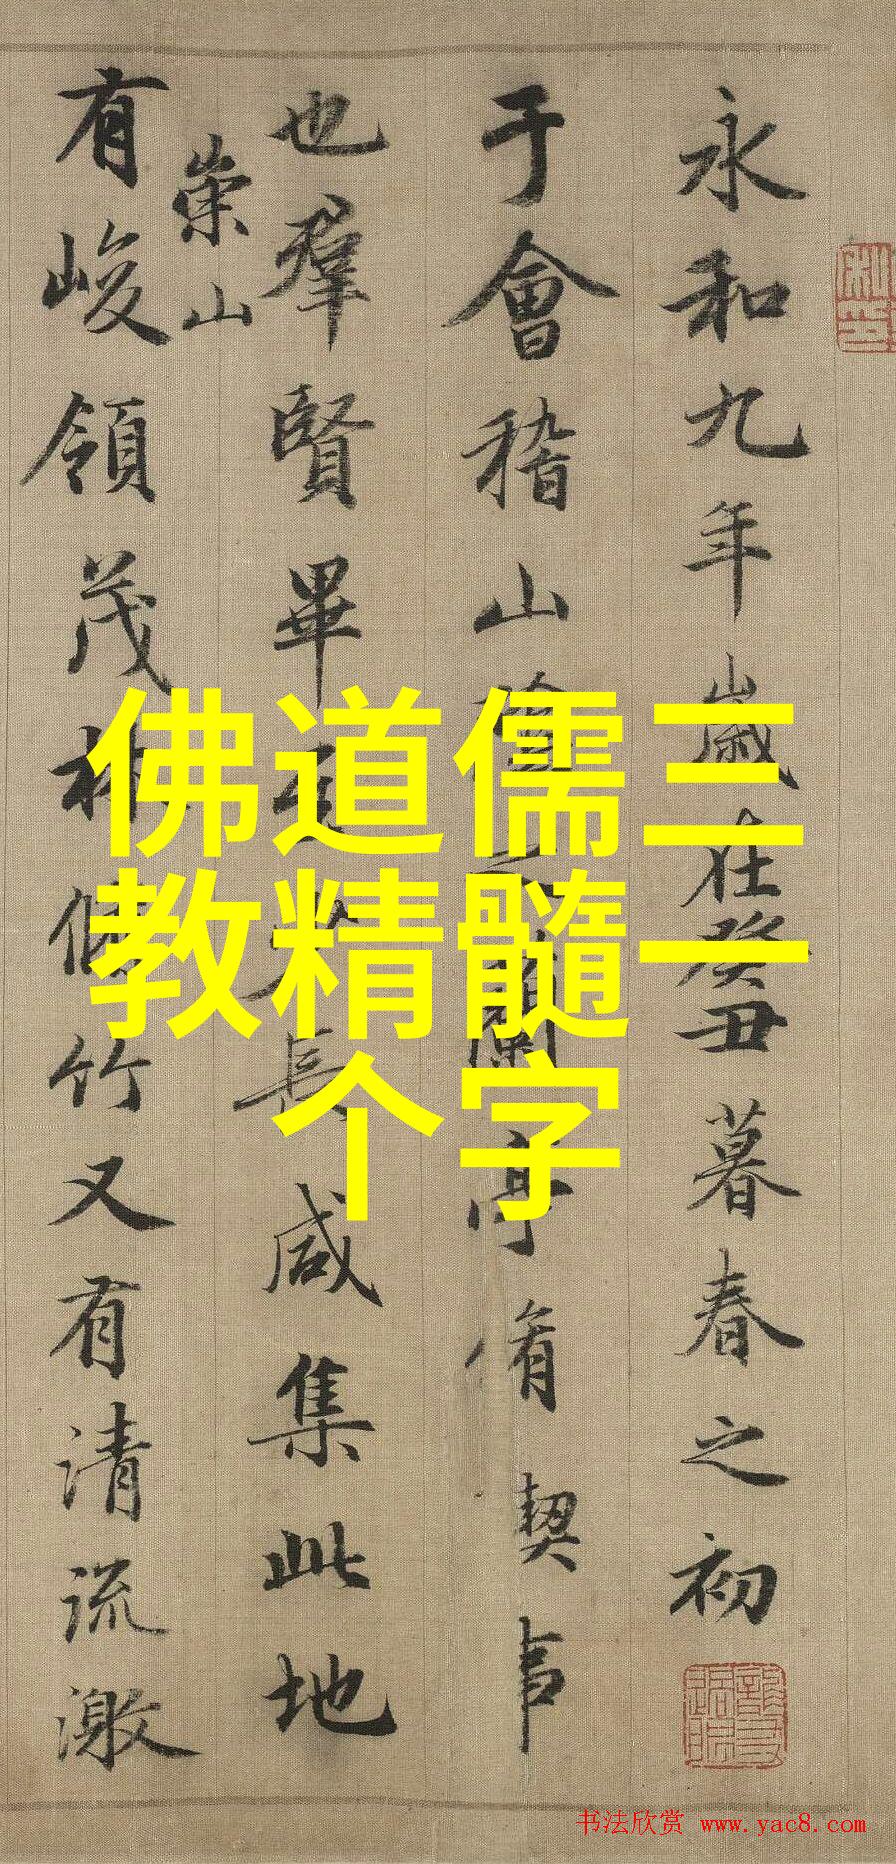 永和九年歲在癸丑暮春之初
于會稽山陰之蘭亭脩禊事
也羣賢畢至少長咸集此地
有崇山峻領茂林脩竹又有清流激
佛道儒三
教精髓一
个字
书法欣赏 www.yac8.com